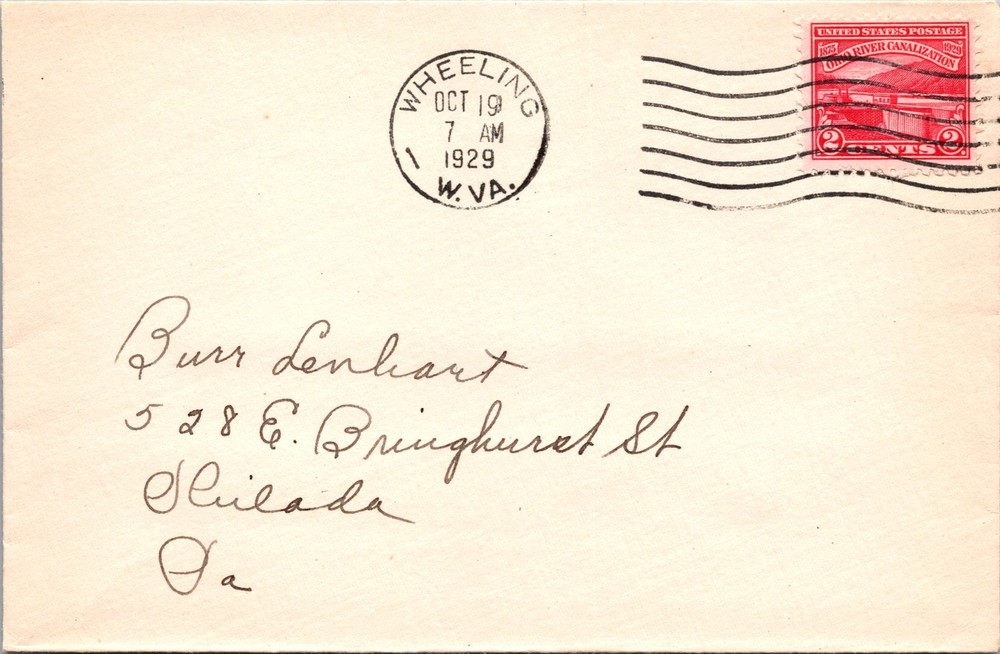 WHEELING
OCT 19
7 AM
1929
1
W. VA.
UNITED STATES POSTAGE
1875 1929
OHIO RIVER CANALIZATION
2 CENTS 2
Burr Lenhart
528 E. Bringhurst St
Philada
Pa